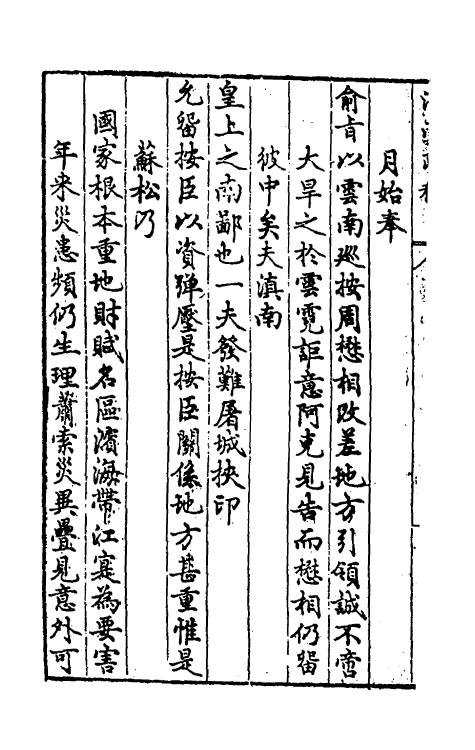 月始奉
俞旨以雲南巡按周懋相改差地方引領誠不啻
大旱之於雲霓詎意阿克見告而懋相仍留
彼中矣夫滇南
皇上之南鄙也一夫發難屠城挾印
允留按臣以資彈壓是按臣關係地方甚重惟是
蘇松乃
國家根本重地財賦名區濱海帶江寔為要害
年來災患頻仍生理蕭索災異疊見意外可